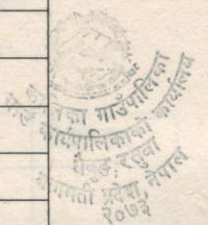 गाउँपालिका
गाउँ कार्यपालिकाको कार्यालय
रसुवा
बागमती प्रदेश, नेपाल
२०७३